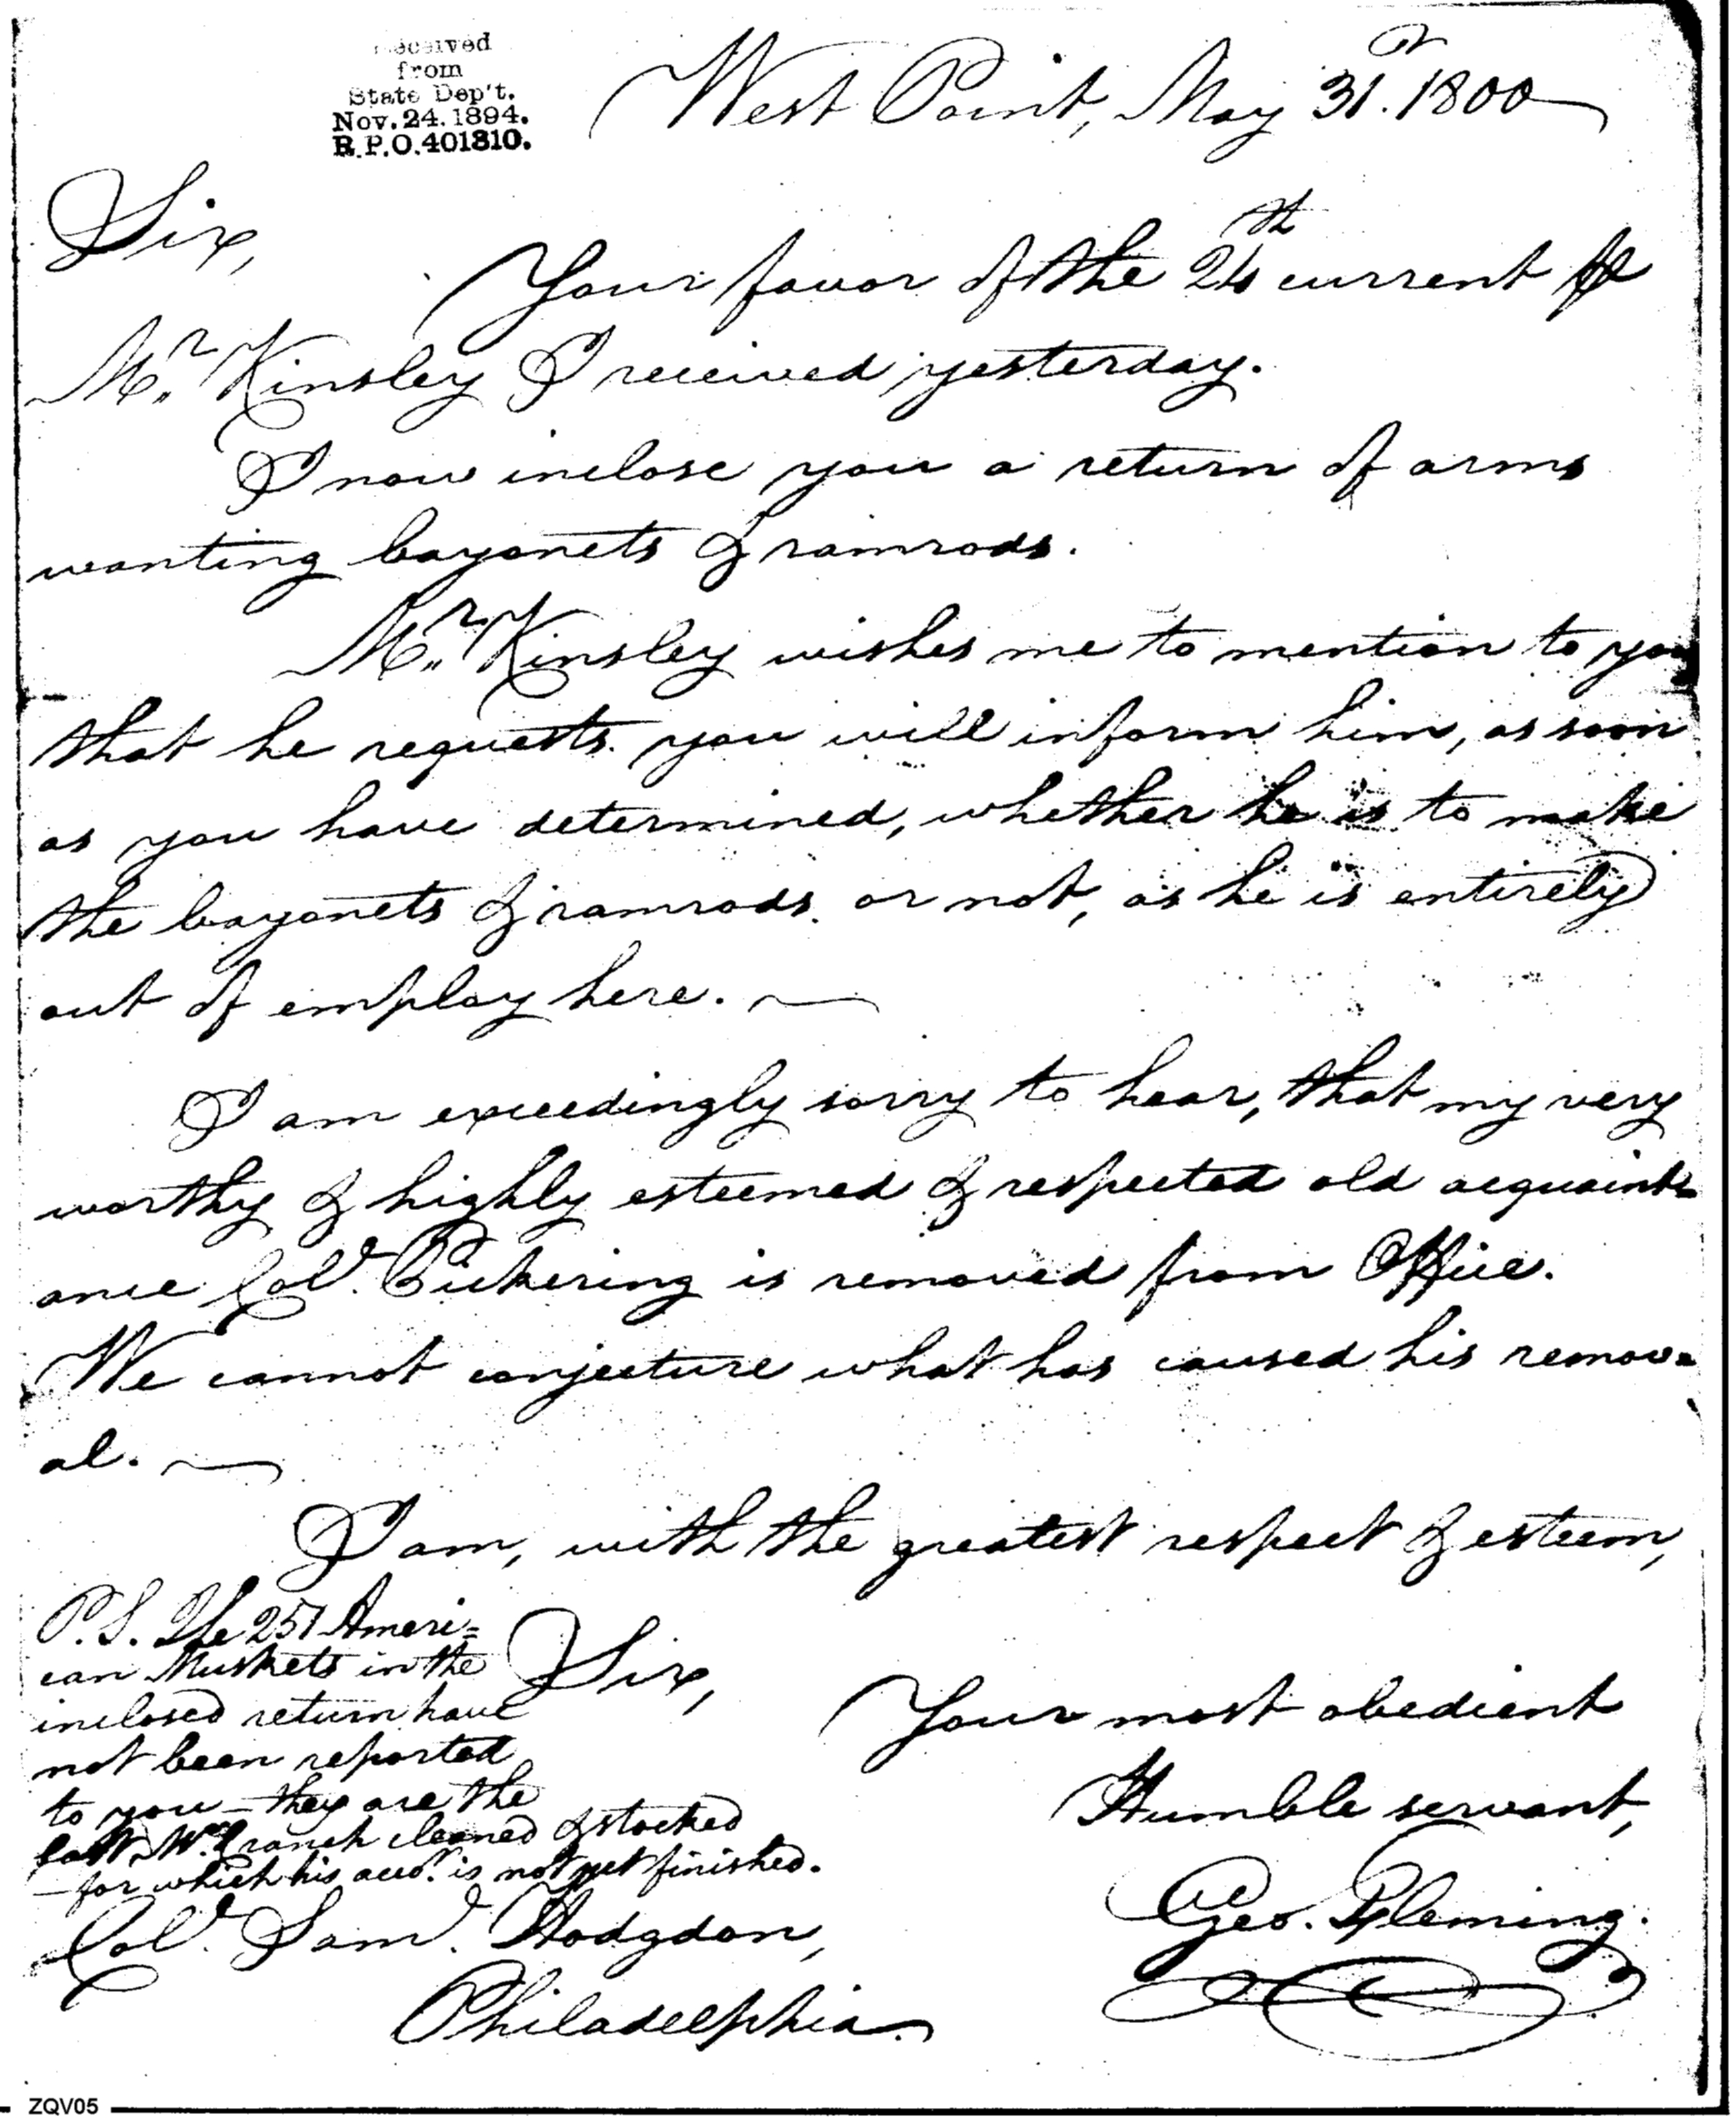 Received
from
State Dep't.
Nov. 24. 1894.
R.P.O. 401310.
West Point, May 31st. 1800
Sir,
Your favor of the 24th current ⅌
Mr. Kinsley I received yesterday.
I now inclose you a return of arms
wanting bayonets & ramrods.
Mr. Kinsley wishes me to mention to you
that he requests you will inform him, as soon
as you have determined, whether he is to make
the bayonets & ramrods or not, as he is entirely
out of employ here.
I am exceedingly sorry to hear, that my very
worthy & highly esteemed & respected old acquaint-
ance Col. Pickering is removed from Office.
We cannot conjecture what has caused his remov-
al.
I am, with the greatest respect & esteem,
Sir,
Your most obedient
Humble servant,
Geo. Fleming.
P.S. The 251 Ameri=
can Muskets in the
inclosed return have
not been reported
to you — they are the
last cleaned & stocked
— for which his acct. is not yet finished.
Col. Saml. Hodgdon,
Philadelphia.
ZQV05